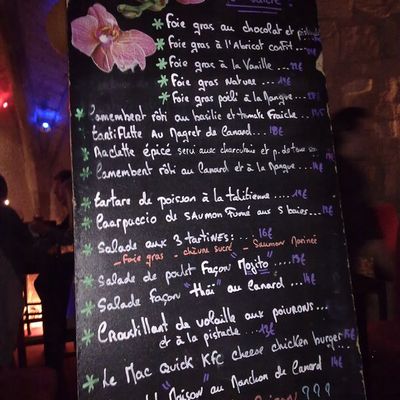 Foie gras au chocolat et
Foie gras à l'Abricot confit
Foie gras à la Vanille ...
Foie gras Nature ...
Foie gras poêlé à la Mangue ...
Camembert rôti au basilic et tomate Fraîche ...
tartiflette au Magret de Canard ... 18€
Raclette épicé servi avec charcuterie et p. de terre
Camembert rôti au Canard et à la Mangue ...
tartare de poisson à la tahitienne ...
Caarpaccio de SAumon Fumé aux 5 baies ...
Salade aux 3 tartines: ... 16€
- Foie gras - chèvre sucré - Saumon Marinée
Salade de poulet Façon "Mojito" ... 15€
Salade façon "thaï" au Canard ...
Croustillant de volaille aux poivrons ...
et à la pistache ... 13€
Le Mac Quick KFC cheese chicken burger
Maison" au Manchon de Canard